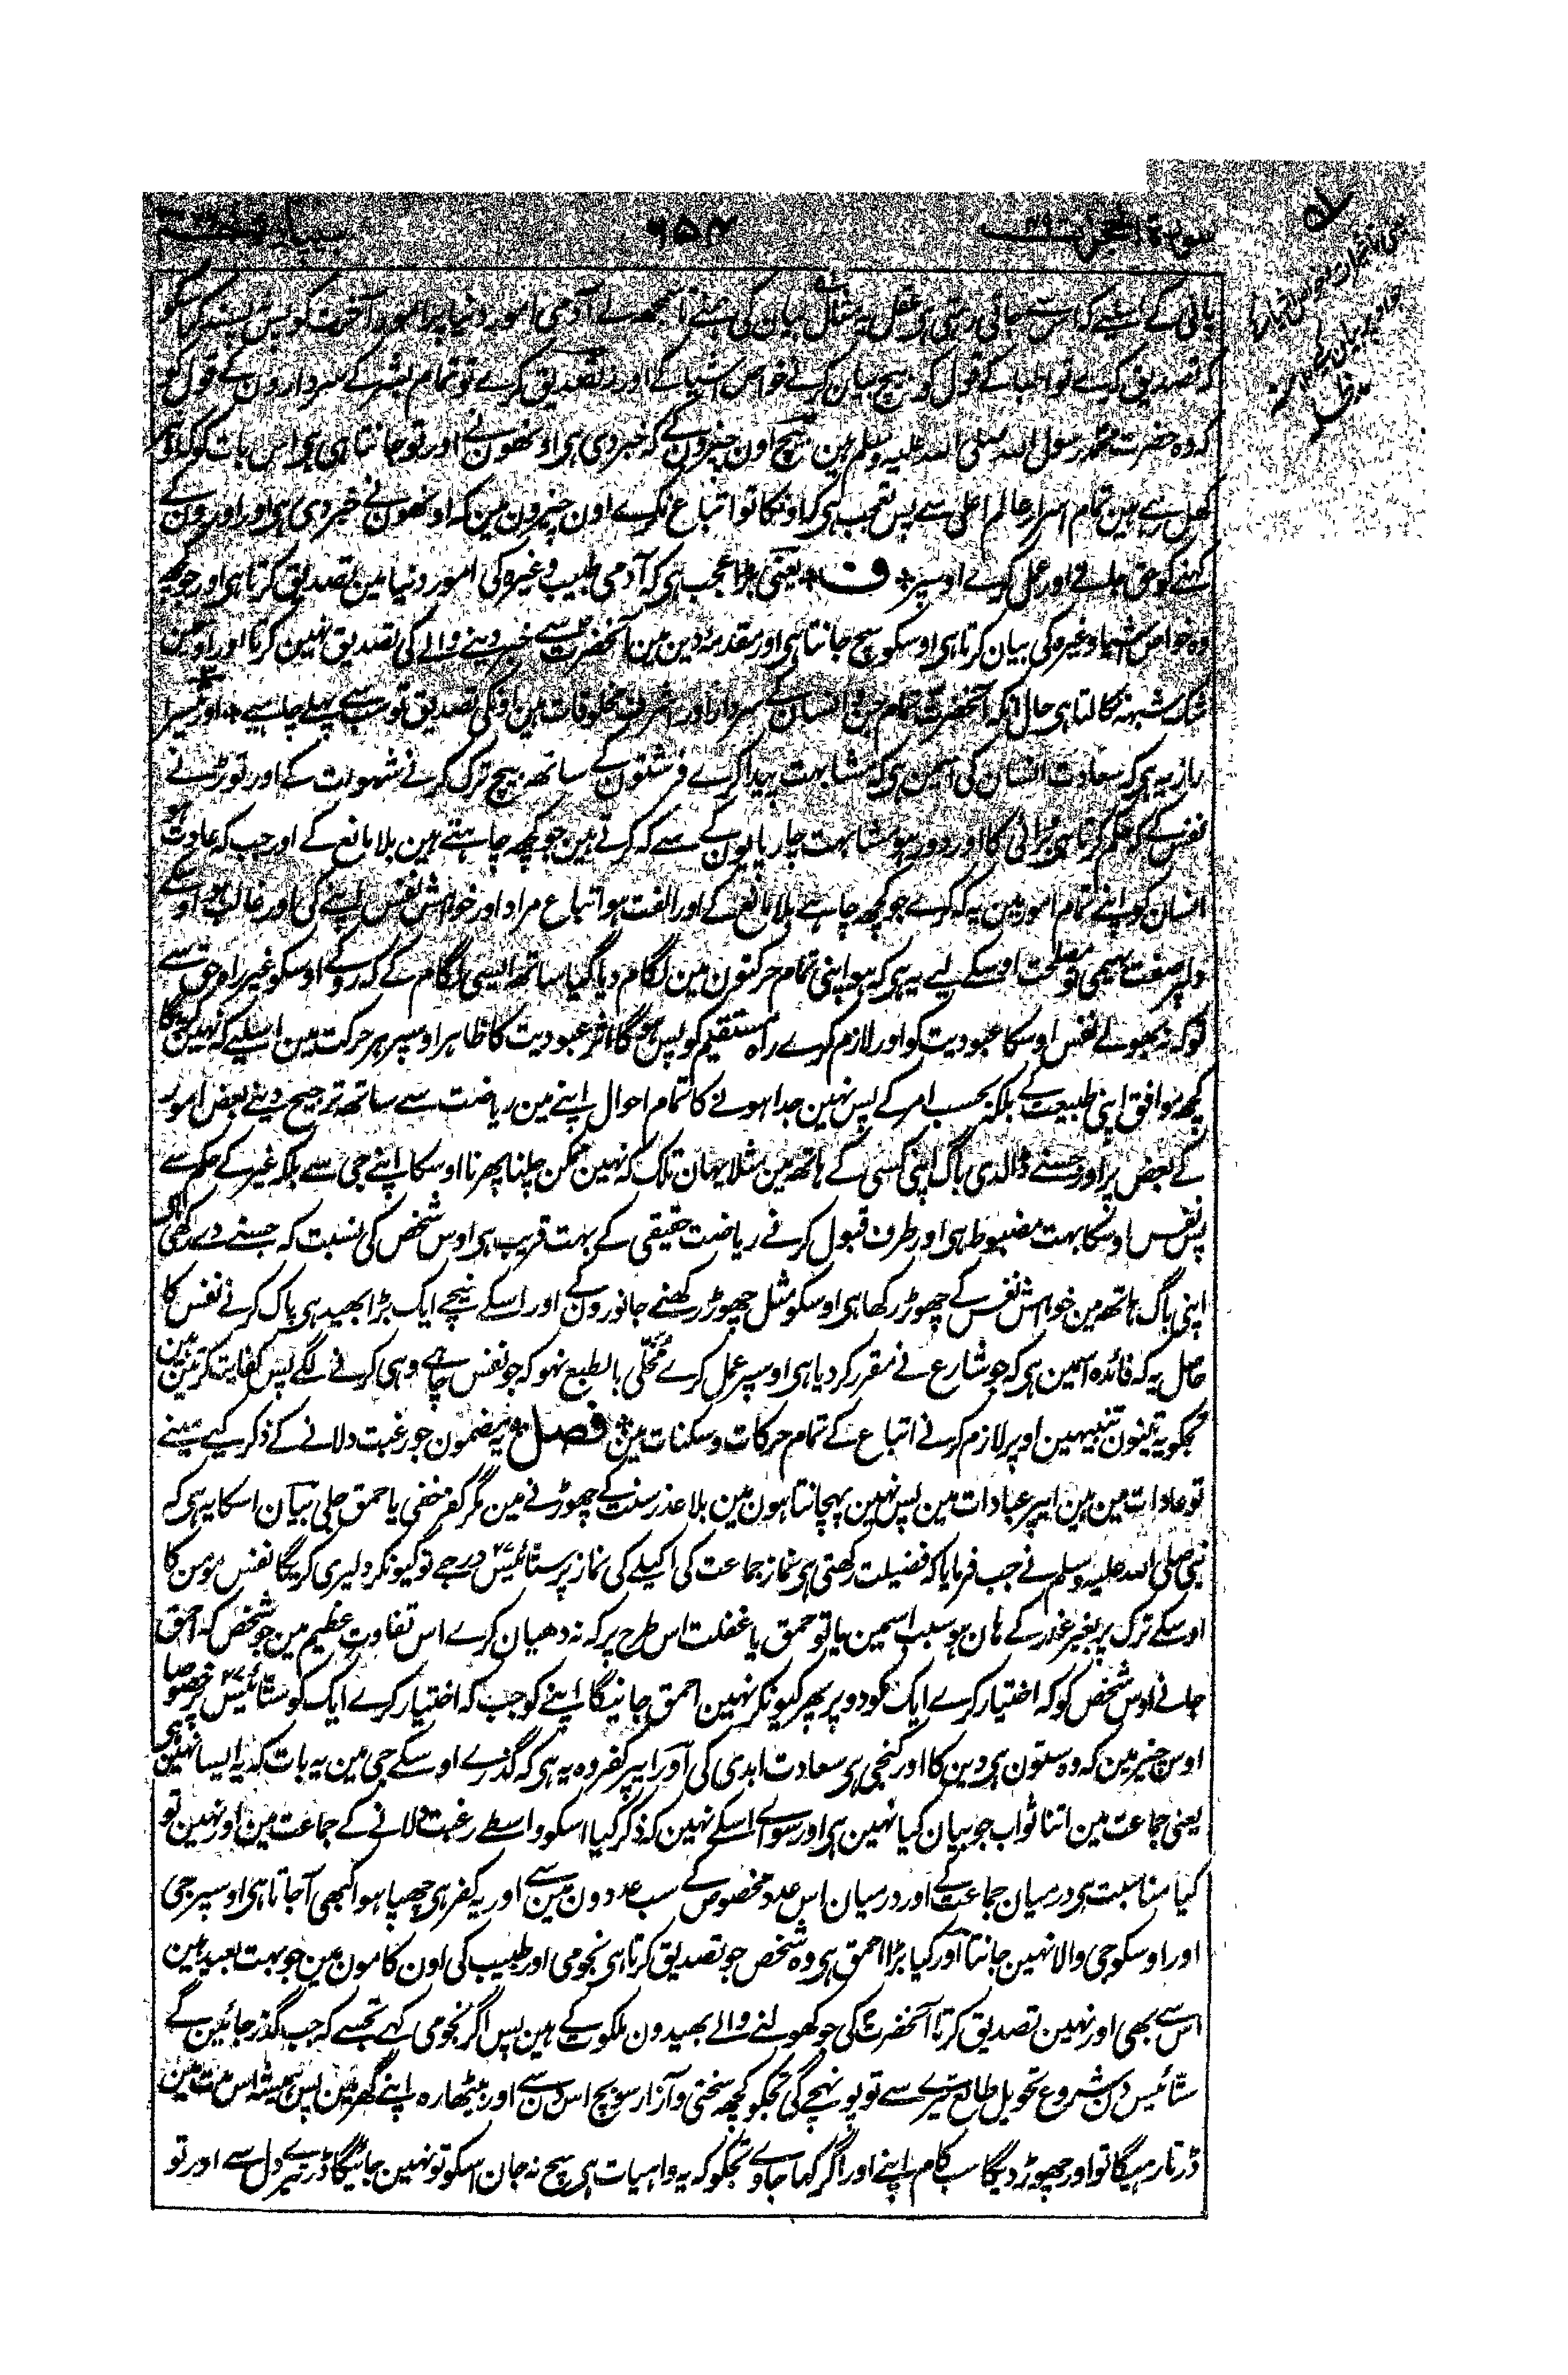 سورۃ الحجرات
۹۵۴
پانی کے اسلیے کہ رستے جاتی رہتی ہی عقل یہ مثال بیان کی ہمنے تا سمجھ لے آدمی امور دنیا پر امور آخرت کو پس پسند کیا تو
کہ تصدیق کرے تو اطبا کے قول کو بیچ بیان کرنے خواص اشیا کے اور نہ تصدیق کرے تو تمام بشر کے سردارون کے قول کو
کہ وہ حضرت محمد رسول اللہ صلی اللہ علیہ وسلم ہین بیچ اون چیزون کے کہ خبر دی ہی اونھون نے اور تو جانتا ہی ہی اس بات کو کہ اونپر
کھل رہے ہین تمام اسرار عالم اعلی سے پس تعجب ہی کہ اونکا تو اتباع نکرے اون چیزون مین کہ اونھون نے خبر دی ہی اور اورون کے
کہنے کو حق جانے اور عمل کرے اوسپر ف یعنی بڑا عجب ہی کہ آدمی طبیب وغیرہ کی امور دنیا مین تصدیق کرتا ہی اور جو کچھ
وہ خواص اشیا وغیرہ کی بیان کرتا ہی اوسکو سچ جانتا ہی اور مقدمۂ دین مین آنحضرت سے خبر دینے والے کی تصدیق نہین کرتا اور اوسمین
شک شبہہ نکالتا ہی حال آنکہ آنحضرت تمام جن و انسان کے سردار اور اشرف مخلوقات ہین اونکی تصدیق تو سب سے پہلے چاہیے اور تیسرا
راز یہ ہی کہ سعادت انسان کی اسمین ہی کہ مشابہت پیدا کرے فرشتون کے ساتھ بیچ ترک کرنے شہوات کے اور توڑنے
نفس کے کہ حکم کرتا ہی برائی کا اور دور ہو مشابہت چارپایون کے سے کہ کرتے ہین جو کچھ چاہتے ہین بلا مانع کے اور جب کہ عادت ہو
انسان کو اپنے تمام امور مین یہ کہ کرے جو کچھ چاہے بلا مانع کے اور الفت ہو اتباع مراد اور خواہش نفس اپنے کی اور غالب ہو اوسکے
دلپر صفت بہیمی تو مصلحت اوسکے لیے یہ ہی کہ ہو اپنی تمام حرکتون مین لگام دیا گیا ساتھ ایسی لگام کے کہ روکے اوسکو غیر راہ حق سے
توکہ نہ بھولے نفس اوسکا عبودیت کو اور لازم کرے راہ مستقیم کو پس ہوگا اثر عبودیت کا ظاہر اوسپر ہر حرکت مین اسلیے کہ نہین کریگا
کچھ موافق اپنی طبیعت کے بلکہ بحسب امر کے پس نہین جدا ہونے کا تمام احوال اپنے مین ریاضت سے ساتھ ترجیح دینے بعض امور
کے بعض پر اور جسنے ڈالدی باگ اپنی کسی کے ہاتھ مین مثلا یہان تک کہ نہین ممکن چلنا پھرنا اوسکا اپنے جی سے بلکہ غیر کے حکم سے
پس نفس اوسکا بہت مضبوط ہی اور طرف قبول کرنے ریاضت حقیقی کے بہت قریب ہی اوس شخص کی نسبت کہ جسنے دے رکھی ہو
اپنی باگ ہاتھ مین خواہش نفس کے چھوڑ رکھا ہی اوسکو مثل چھوڑ رکھنے جانورون کے اور اسکے نیچے ایک بڑا بھید ہی پاک کرنے نفس کا
حاصل یہ کہ فائدہ اسمین ہی کہ جو شارع نے مقرر کر دیا ہی اوسپر عمل کرے مخلّی بالطبع نہو کہ جو نفس چاہے وہی کرنے لگے پس کفایت کرتین ہین
تجکو یہ تینون تنبیہین اوپر لازم کرنے اتباع کے تمام حرکات و سکنات مین فصل یہ مضمون جو رغبت دلانے کے ذکر کیے ہمنے
تو عادات مین ہین اپر عبادات مین پس نہین پہچانتا ہون مین بلا عذر سنت کے چھوڑنے مین مگر کفر خفی یا حمق جلی بیان اسکا یہ ہی کہ
نبی صلی اللہ علیہ وسلم نے جب فرمایا کہ فضیلت رکھتی ہی نماز جماعت کی اکیلے کی نماز پر ستائیس درجے تو کیونکر دلیری کریگا نفس مومن کا
اوسکے ترک پر بغیر عذر کے ہان ہو سبب اسمین یا تو حمق یا غفلت اس طرح پر کہ نہ دھیان کرے اس تفاوت عظیم مین جو شخص کہ احمق
جانے اوس شخص کو کہ اختیار کرے ایک کو دو پر پھر کیونکر نہین احمق جانیگا اپنے کو جب کہ اختیار کرے ایک کو ستائیس پر خصوصا
اوس چیز مین کہ وہ ستون ہی دین کا اور کنجی ہی سعادت ابدی کی اور اپر کفر وہ یہ ہی کہ گذرے اوسکے جی مین یہ بات کہ یہ ایسا نہین ہی
یعنی جماعت مین اتنا ثواب جو بیان کیا نہین ہی اور سوائے اسکے نہین کہ ذکر کیا اسکو واسطے رغبت دلانے کے جماعت مین اور نہین تو
کیا مناسبت ہی درمیان جماعت کے اور درمیان اس عدد مخصوص کے سب عددون مین سے اور یہ کفر ہی چھپا ہوا کبھی آجاتا ہی اوسپر جی
اور اوسکو جی والا نہین جانتا اور کیا بڑا احمق ہی وہ شخص جو تصدیق کرتا ہی نجومی اور طبیب کی اون کامون مین جو بہت بعید ہین
اس سے بھی اور نہین تصدیق کرتا آنحضرت کی جو کھولنے والے بھیدون ملکوت کے ہین پس اگر نجومی کہے تجسے کہ جب گذر جائین گے
ستائیس دن شروع تحویل طالع تیرے سے تو پونہچے گی تجکو کچھ سختی و آزار سو بچ اس دن سے اور بیٹھا رہ اپنے گھر مین پس ہمیشہ اس مدت مین
ڈرتا رہیگا تو اور چھوڑ دیگا سب کام اپنے اور اگر کہا جاوے تجکو کہ یہ واہیات ہی سچ نہ جان اسکو تو نہین جائیگا ڈر تیرے دل سے اور تو